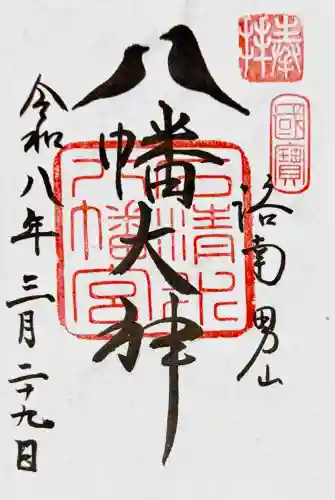 奉拝
國寶
洛南 男山
八幡大神
石清水八幡宮
令和八年 三月 二十九日